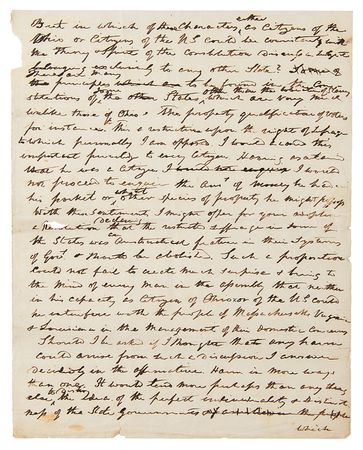 But in which of these characters, as Citizens of
Ohio or Citizens of the U.S. could he
the thing
belongs, exclusively to any other State?
principles
stitutions of other States, which are very much
unlike those of Ohio. The property qualification of voters
for instance. This a restriction upon the right of suffrage
to which personally I am opposed. I would accord this
important privilege to every Citizen. Having ascertained
that he was a Citizen I would
not proceed to enquire the Amt of money he had in
his pocket or what other species of property he might possess.
With this sentiment I might offer for your adoption
a resolution declaring that the restricted suffrage in some of
the States was an feature in their Systems
of Govt & should be abolished. Such a proposition
could not fail to excite much surprise & bring to
the mind of every man in the assembly that neither
in his capacity, as Citizen of Ohio or of the U.S. could
he interfere with the people of Massachusetts, Virginia
& Louisiana in the management of their domestic concerns
Should I be asked if I thought that any harm
could arise from such a discussion I answer
decidedly in the affirmative. Harm in more ways
than one. It would tend more perhaps than any thing
else to the idea of the perfect individuality & distinct
ness of the State Governments
which